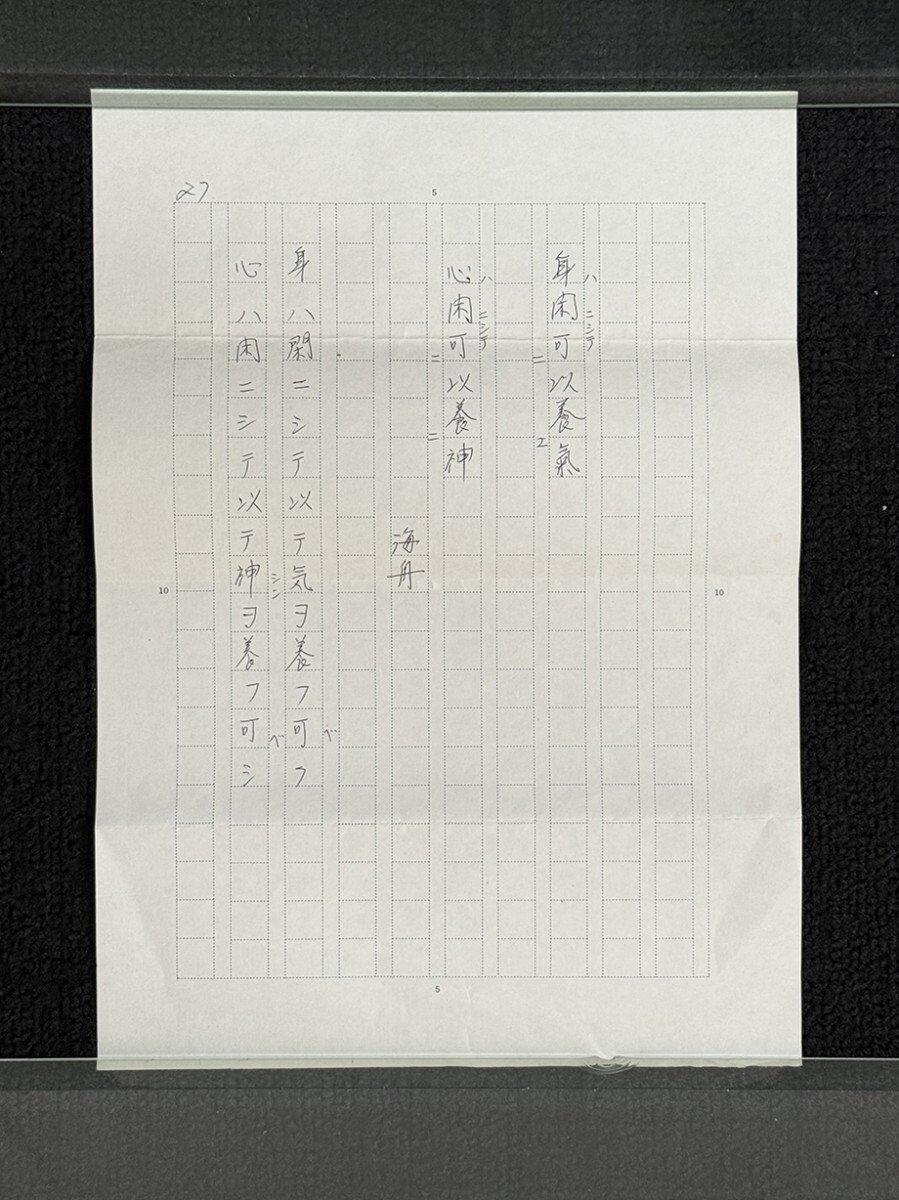 27
5
身ハ閑ニシテ可ニ以養エ氣
心ハ閑ニシテ可ニ以養ニ神
海舟
身ハ閑ニシテ以テ気ヲ養フ可ベク
心ハ閑ニシテ以テ神シンヲ養フ可ベシ
10
10
5